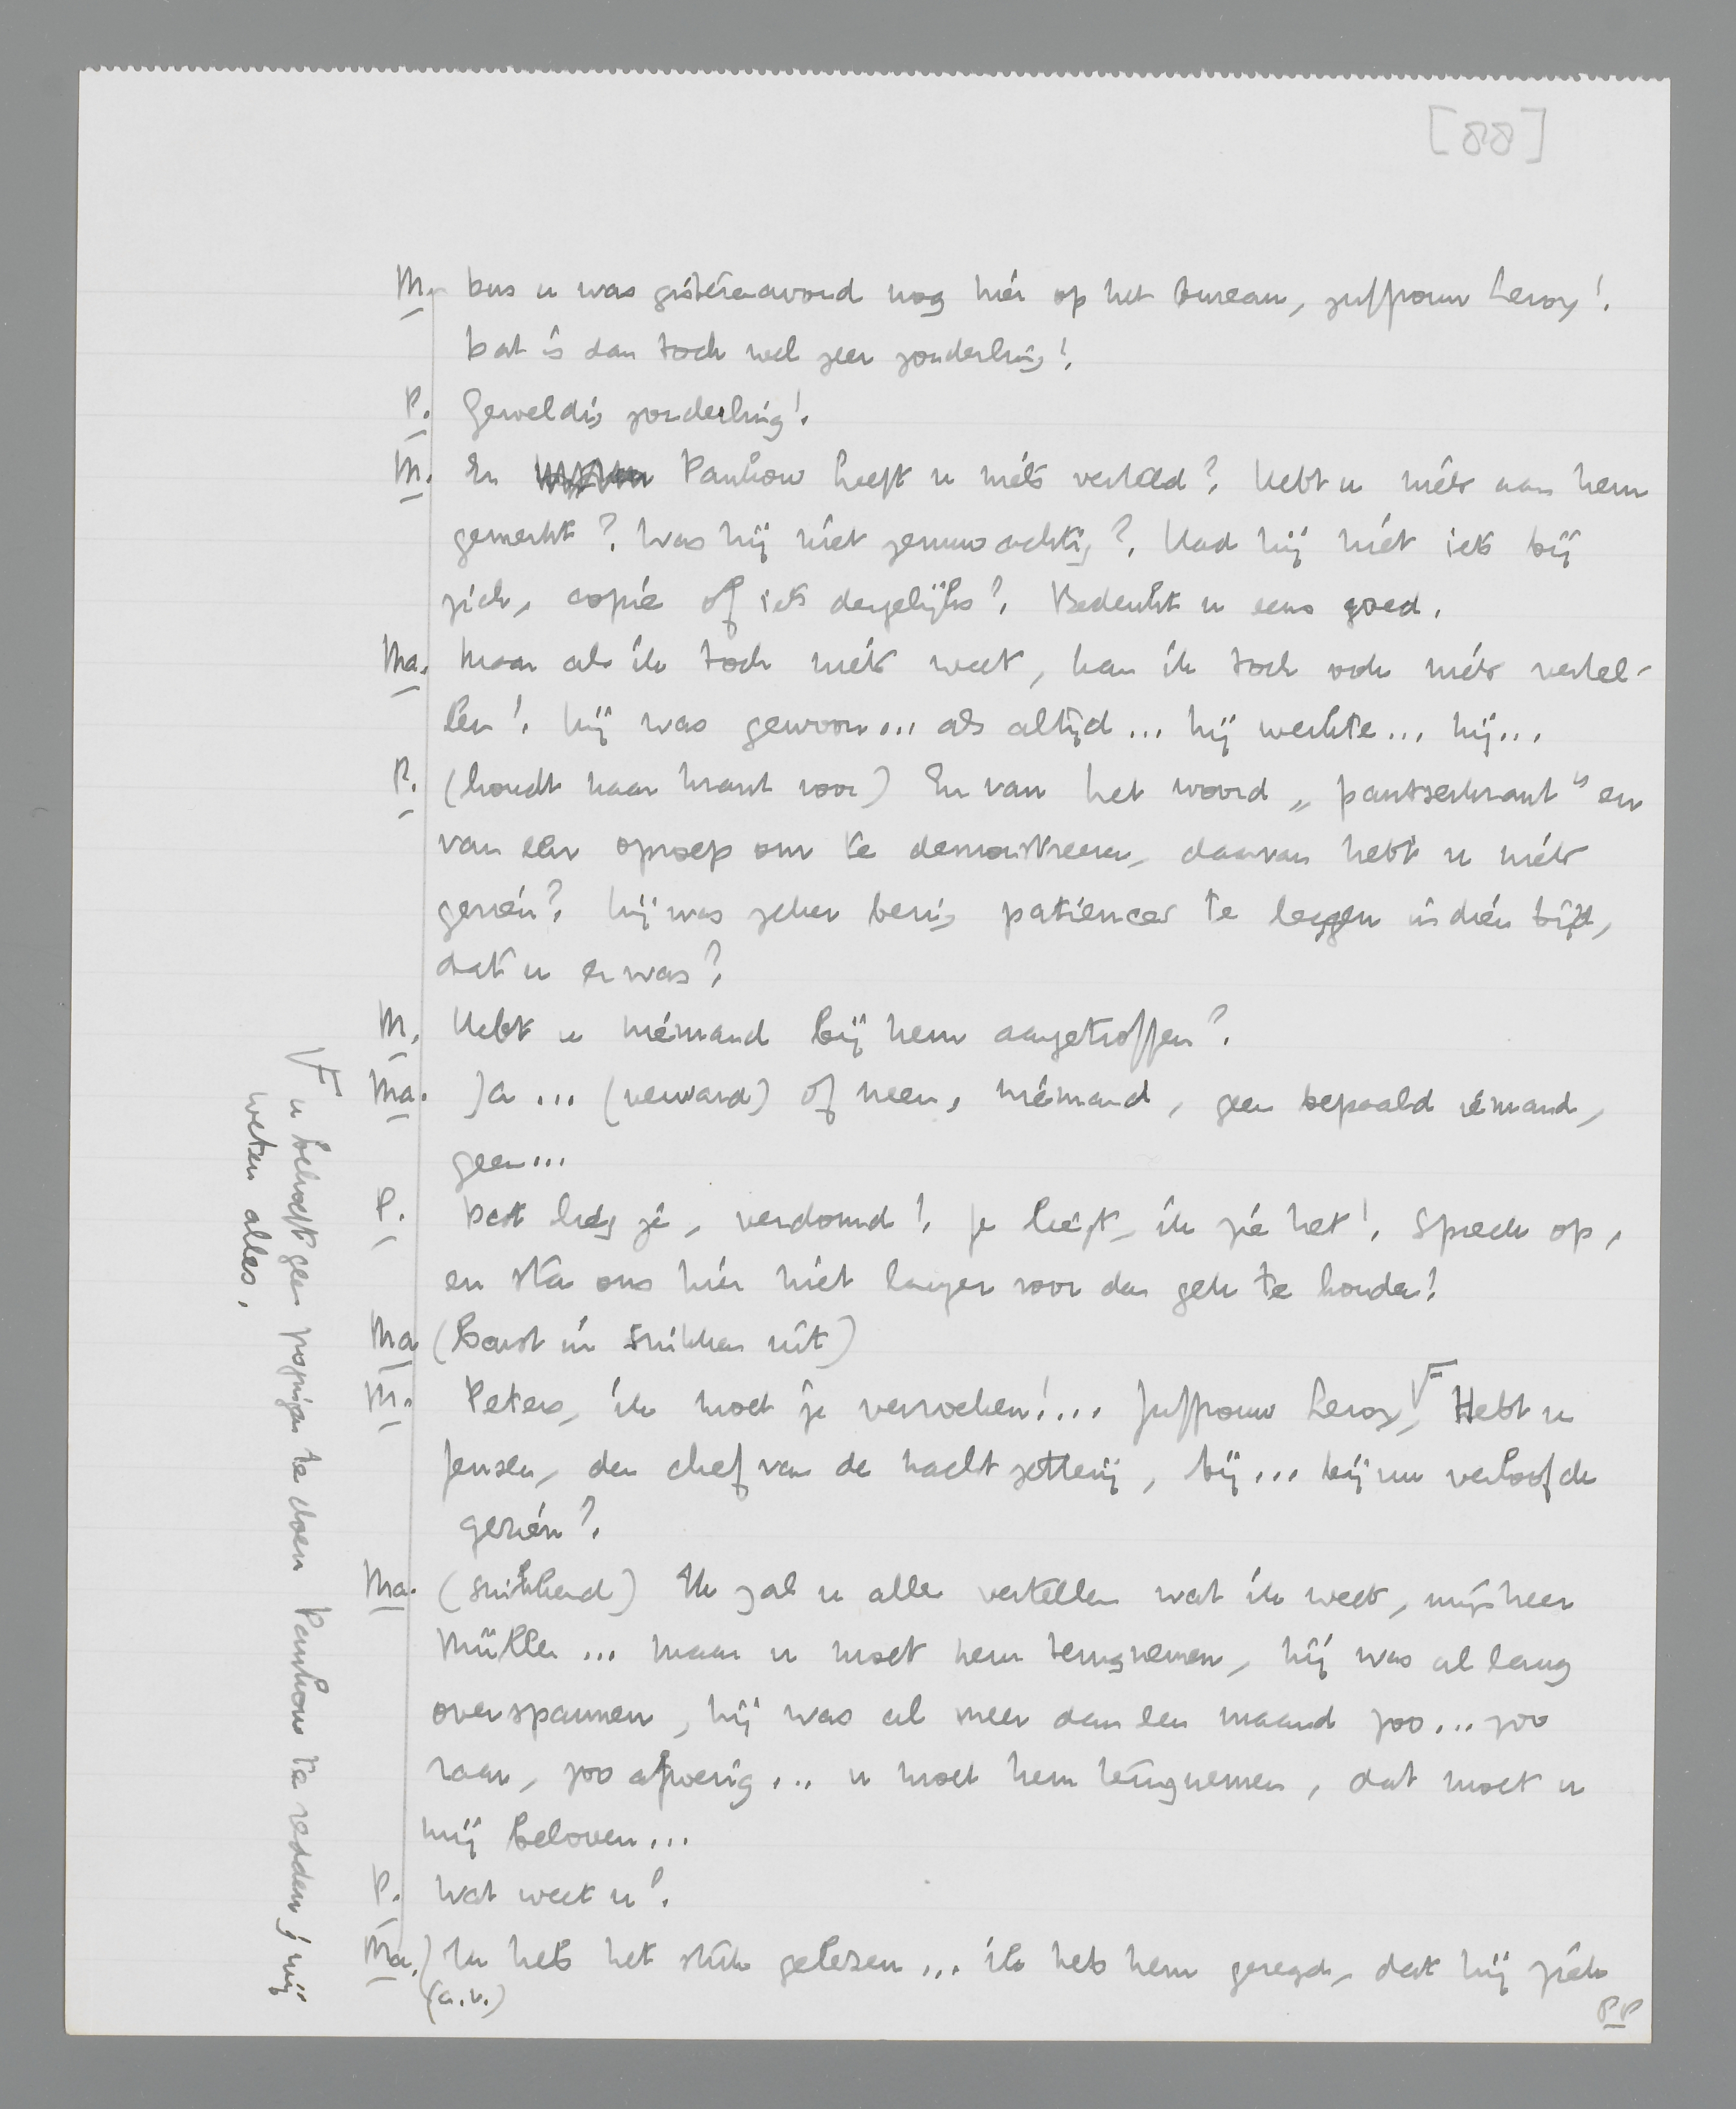 [88]
M. Dus u was gisterenavond nog hier op het bureau, juffrouw Leroy!
Dat is dan toch wel zeer zonderling!
P. Geweldig zonderling!
M. En Pankow heeft u niets verteld? Hebt u niets aan hem
gemerkt? Was hij niet zenuwachtig? Had hij niet iets bij
zich, copie of iets dergelijks? Bedenkt u eens goed.
Ma. Maar als ik toch niets weet, kan ik toch ook niets vertel-
len! Hij was gewoon... als altijd... hij werkte... hij...
P. (houdt haar krant voor) En van het woord „pantserkrant" en
van een oproep om te demonstreeren, daarvan hebt u niets
gezien? Hij was zeker bezig patiences te leggen in dien tijd,
dat u er was?
M. Hebt u niemand bij hem aangetroffen?
Ma. Ja... (verward) of neen, niemand, geen bepaald iemand,
geen...
P. Dat lieg je, verdomd! Je liegt, ik zie het! Spreek op,
en sta ons hier niet langer voor den gek te houden!
Ma (barst in snikken uit)
M. Peters, ik moet je verzoeken!... Juffrouw Leroy, Ꟶ Hebt u
Jensen, den chef van de nachtzetterij, bij... bij uw verloofde
gezien?
Ma. (snikkend) Ik zal u alles vertellen wat ik weet, mijnheer
Müller... maar u moet hem terugnemen, hij was al lang
overspannen, hij was al meer dan een maand zoo... zoo
raar, zoo afwezig... u moet hem terugnemen, dat moet u
mij beloven...
P. Wat weet u?
Ma.) Ik heb het stuk gelezen... ik heb hem gezegd, dat hij zich
(a.v.)
88
u behoeft geen pogingen te doen Pankow te redden; wij
weten alles.